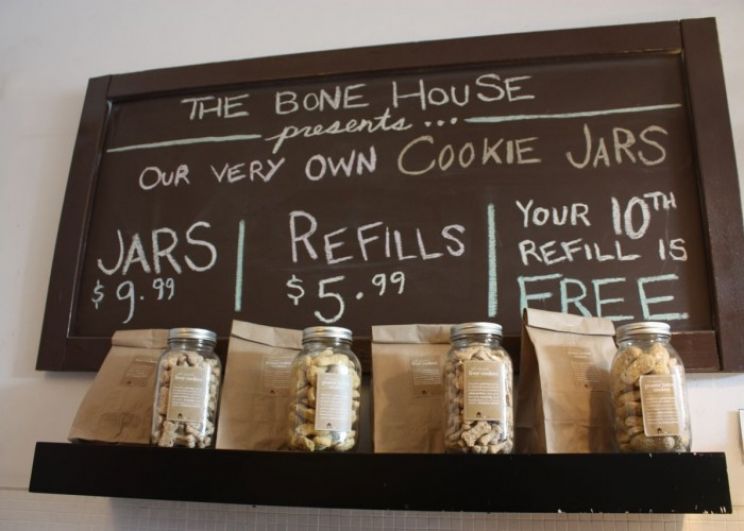 THE BONE HOUSE
presents...
OUR VERY OWN COOKIE JARS
JARS
$9.99
REFILLS
$5.99
YOUR 10TH
REFILL IS
FREE